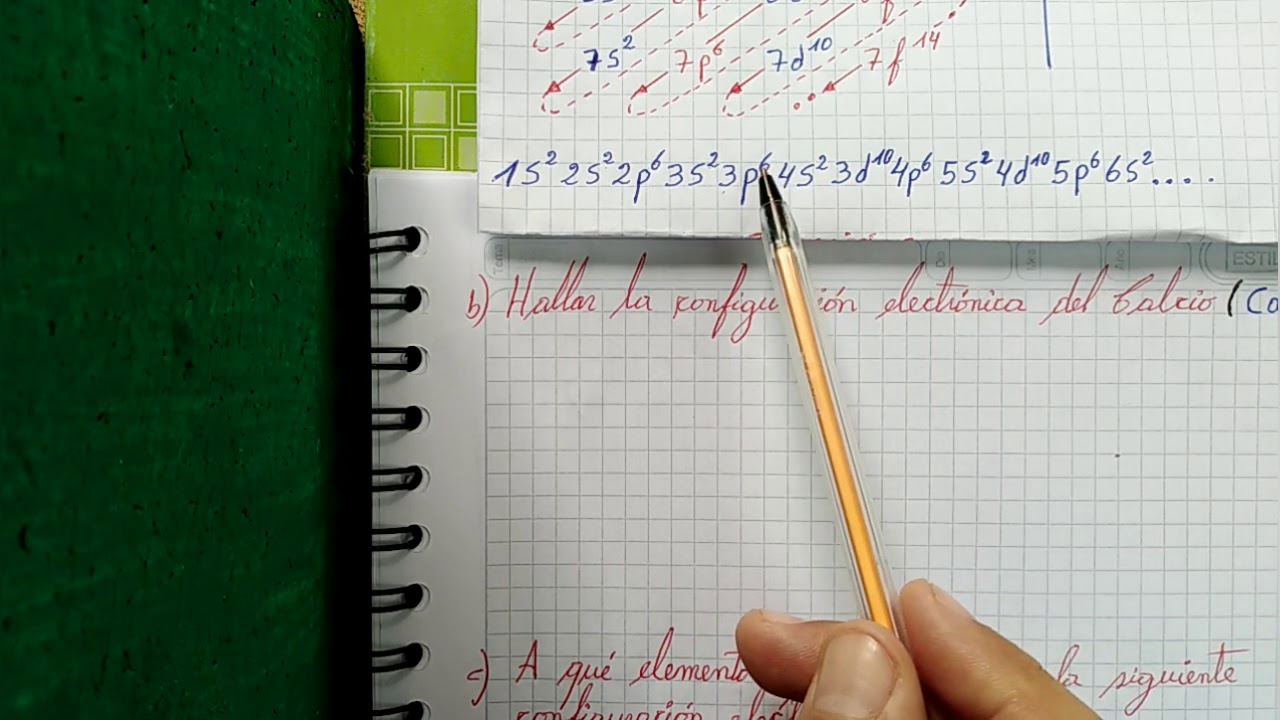 7s² 7p⁶ 7d¹⁰ 7f¹⁴
1s² 2s² 2p⁶ 3s² 3p⁶ 4s² 3d¹⁰ 4p⁶ 5s² 4d¹⁰ 5p⁶ 6s² ....
Tema Día Mes Año ESTIL
b) Hallar la configu ión electrónica del Calcio (Ca
c) A qué elemento la siguiente
configuración